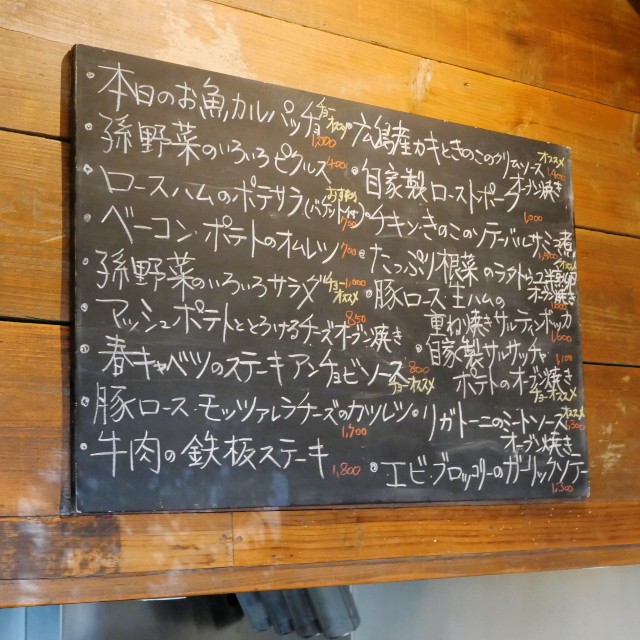 本日のお魚カルパッチョ チョーオススメ 1,000
孫野菜のいろいろピクルス 400
ロースハムのポテサラ(バゲット付) おすすめ 700
ベーコン・ポテトのオムレツ 700
孫野菜のいろいろサラダ チョーオススメ 1,000
マッシュポテトととろけるチーズオーブン焼き 850
春キャベツのステーキアンチョビソース 800 チョーオススメ
豚ロース・モッツァレラチーズのカツレツ 1,700
牛肉の鉄板ステーキ 1,800
広島産カキときのこのクリームソース オススメ 1,400
自家製ローストポーク オーブン焼き 1,000
チキン・きのこのソテーバルサミコ煮
たっぷり根菜のラタトゥユ オススメ
オーブン焼き
豚ロース生ハムの
重ね焼きサルティンボッカ 1,600
自家製サルサッチャ 1,100
ポテトのオーブン焼き チョーオススメ
リガトーニのミートソース オススメ 1,300
オーブン焼き
エビ・ブロッコリーのガーリックソテー 1,300